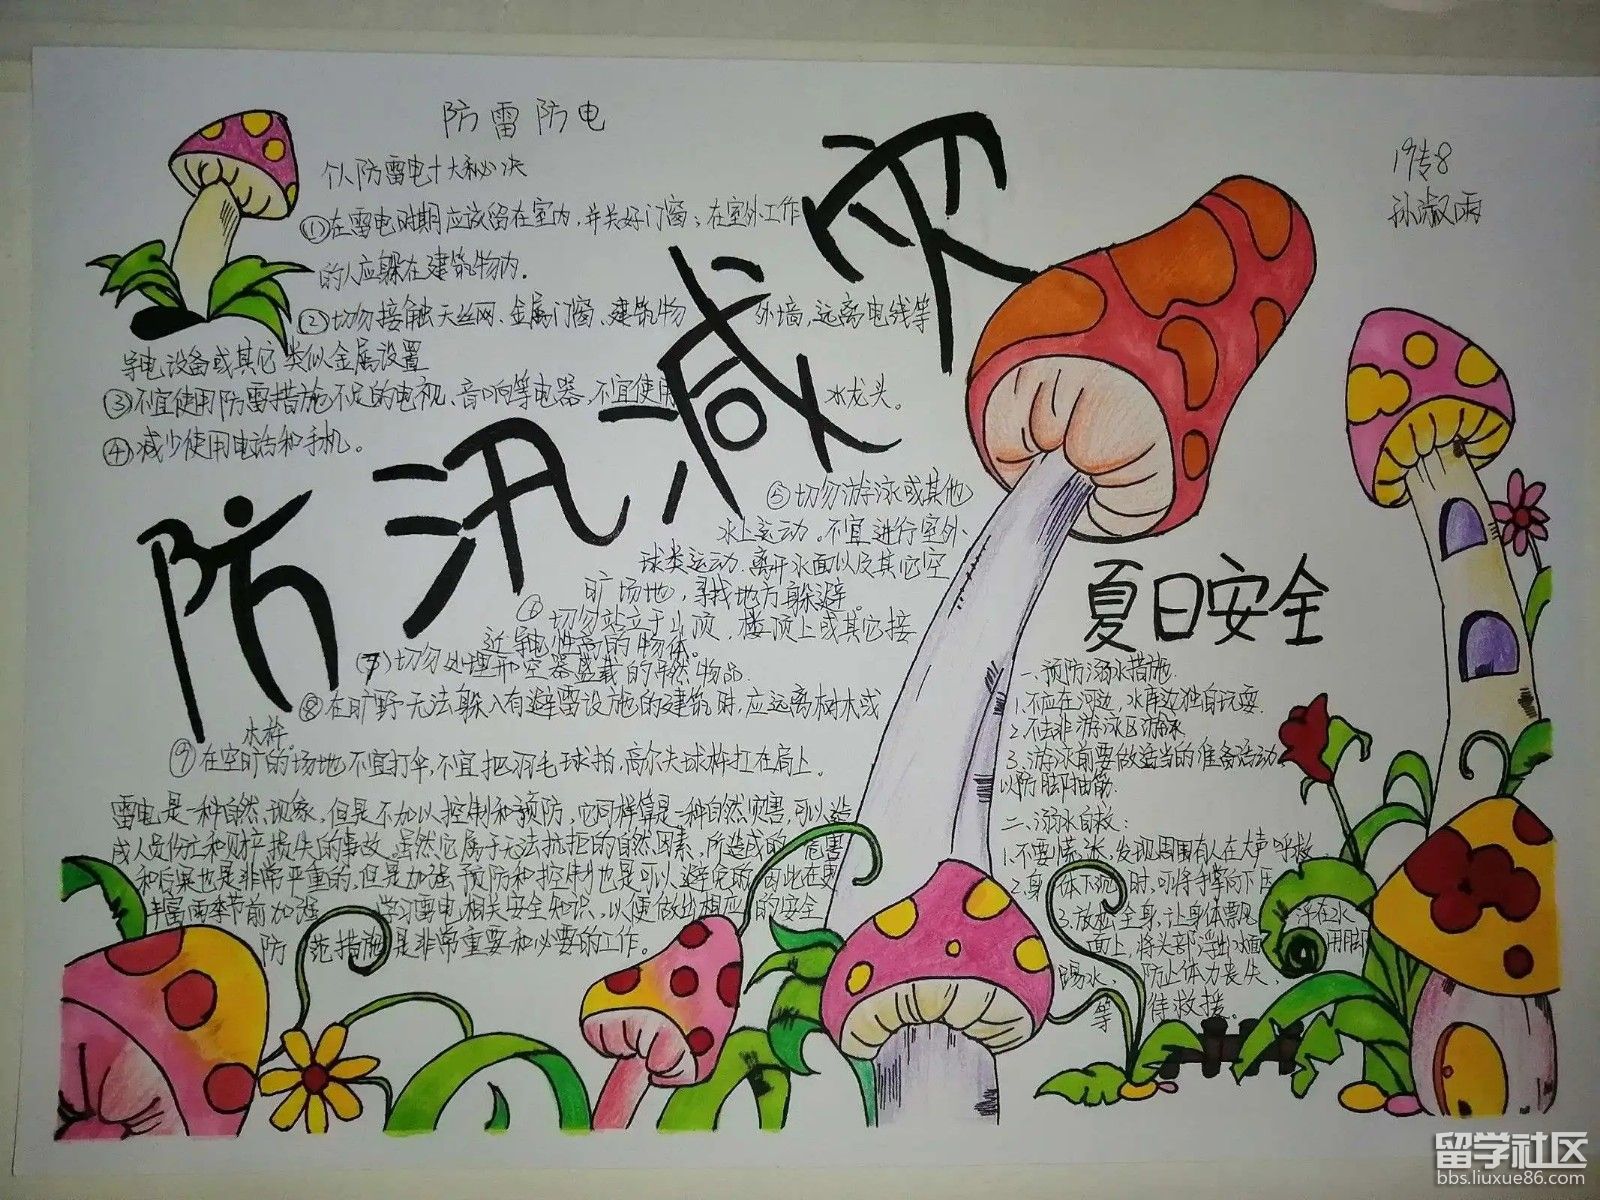 防雷防电
个人防雷电十大秘决
①在雷电时期应该留在室内,并关好门窗;在室外工作
的人应躲在建筑物内。
②切勿接触天丝网、金属门窗、建筑物外墙,远离电线等
导电设备或其它类似金属设置
③不宜使用防雷措施不足的电视、音响等电器,不宜使用水龙头。
④减少使用电话和手机。
防汛减灾
⑤切勿游泳或其他
水上运动。不宜进行室外
球类运动.离开水面以及其它空
旷场地,寻找地方躲避。
⑥切勿站立于山顶、楼顶上或其它接
近导电性高的物体。
⑦切勿处理开空器盛载的易燃物品.
⑧在旷野无法躲入有避雷设施的建筑时,应远离树木或
⑨在空旷的场地不宜打伞,不宜把羽毛球拍,高尔夫球杆扛在肩上.
雷电是一种自然现象,但是不加以控制和预防,它同样算是一种自然灾害,可以造
成人员伤亡和财产损失的事故.虽然它属于无法抗拒的自然因素,所造成的危害
和后果也是非常严重的,但是加强预防和控制也是可以避免
丰富雨季节前加强学习雷电相关安全知识,以便做出相应的安全
防范措施是非常重要和必要的工作。
19专8
孙淑雨
夏日安全
一.预防溺水措施.
1.不应在河边、水库边独自玩耍.
2.不去非游泳区游泳
3.游泳前要做适当的准备活动
以防脚抽筋.
二.溺水自救:
1.不要慌张,发现周围有人在大声呼救
2.身体下沉时,可将手掌向下压
3.放松全身,让身体飘浮在水
面上,将头部浮出水面用脚
踢水,防止体力丧失,
等待救援。
留学社区
bbs.liuxue86.com